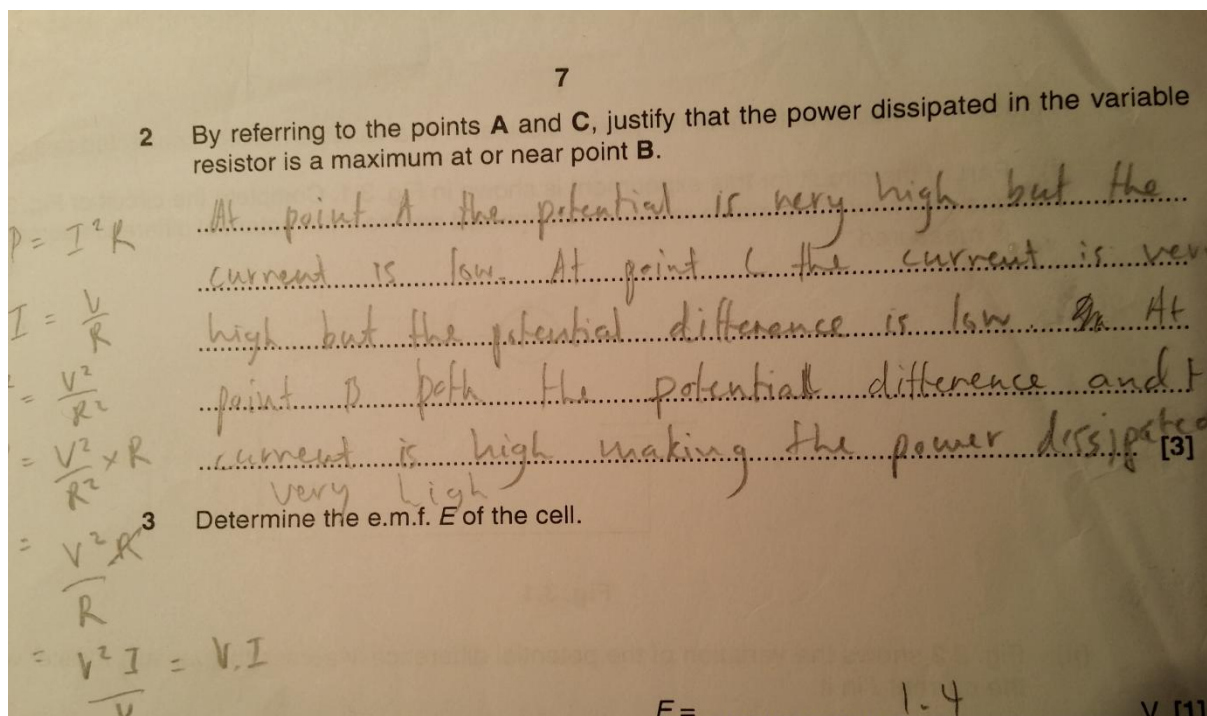 7
2 By referring to the points A and C, justify that the power dissipated in the variable
resistor is a maximum at or near point B.
P = I²R
At point A the potential is very high but the
current is low. At point C the current is ver
I = V/R
high but the potential difference is low. At
= V²/R²
point B both the potential difference and t
= V²/R² × R
current is high making the power dissipated [3]
very high
3 Determine the e.m.f. E of the cell.
= V²R/R
= V²I/V = V.I
E = 1.4 V [1]